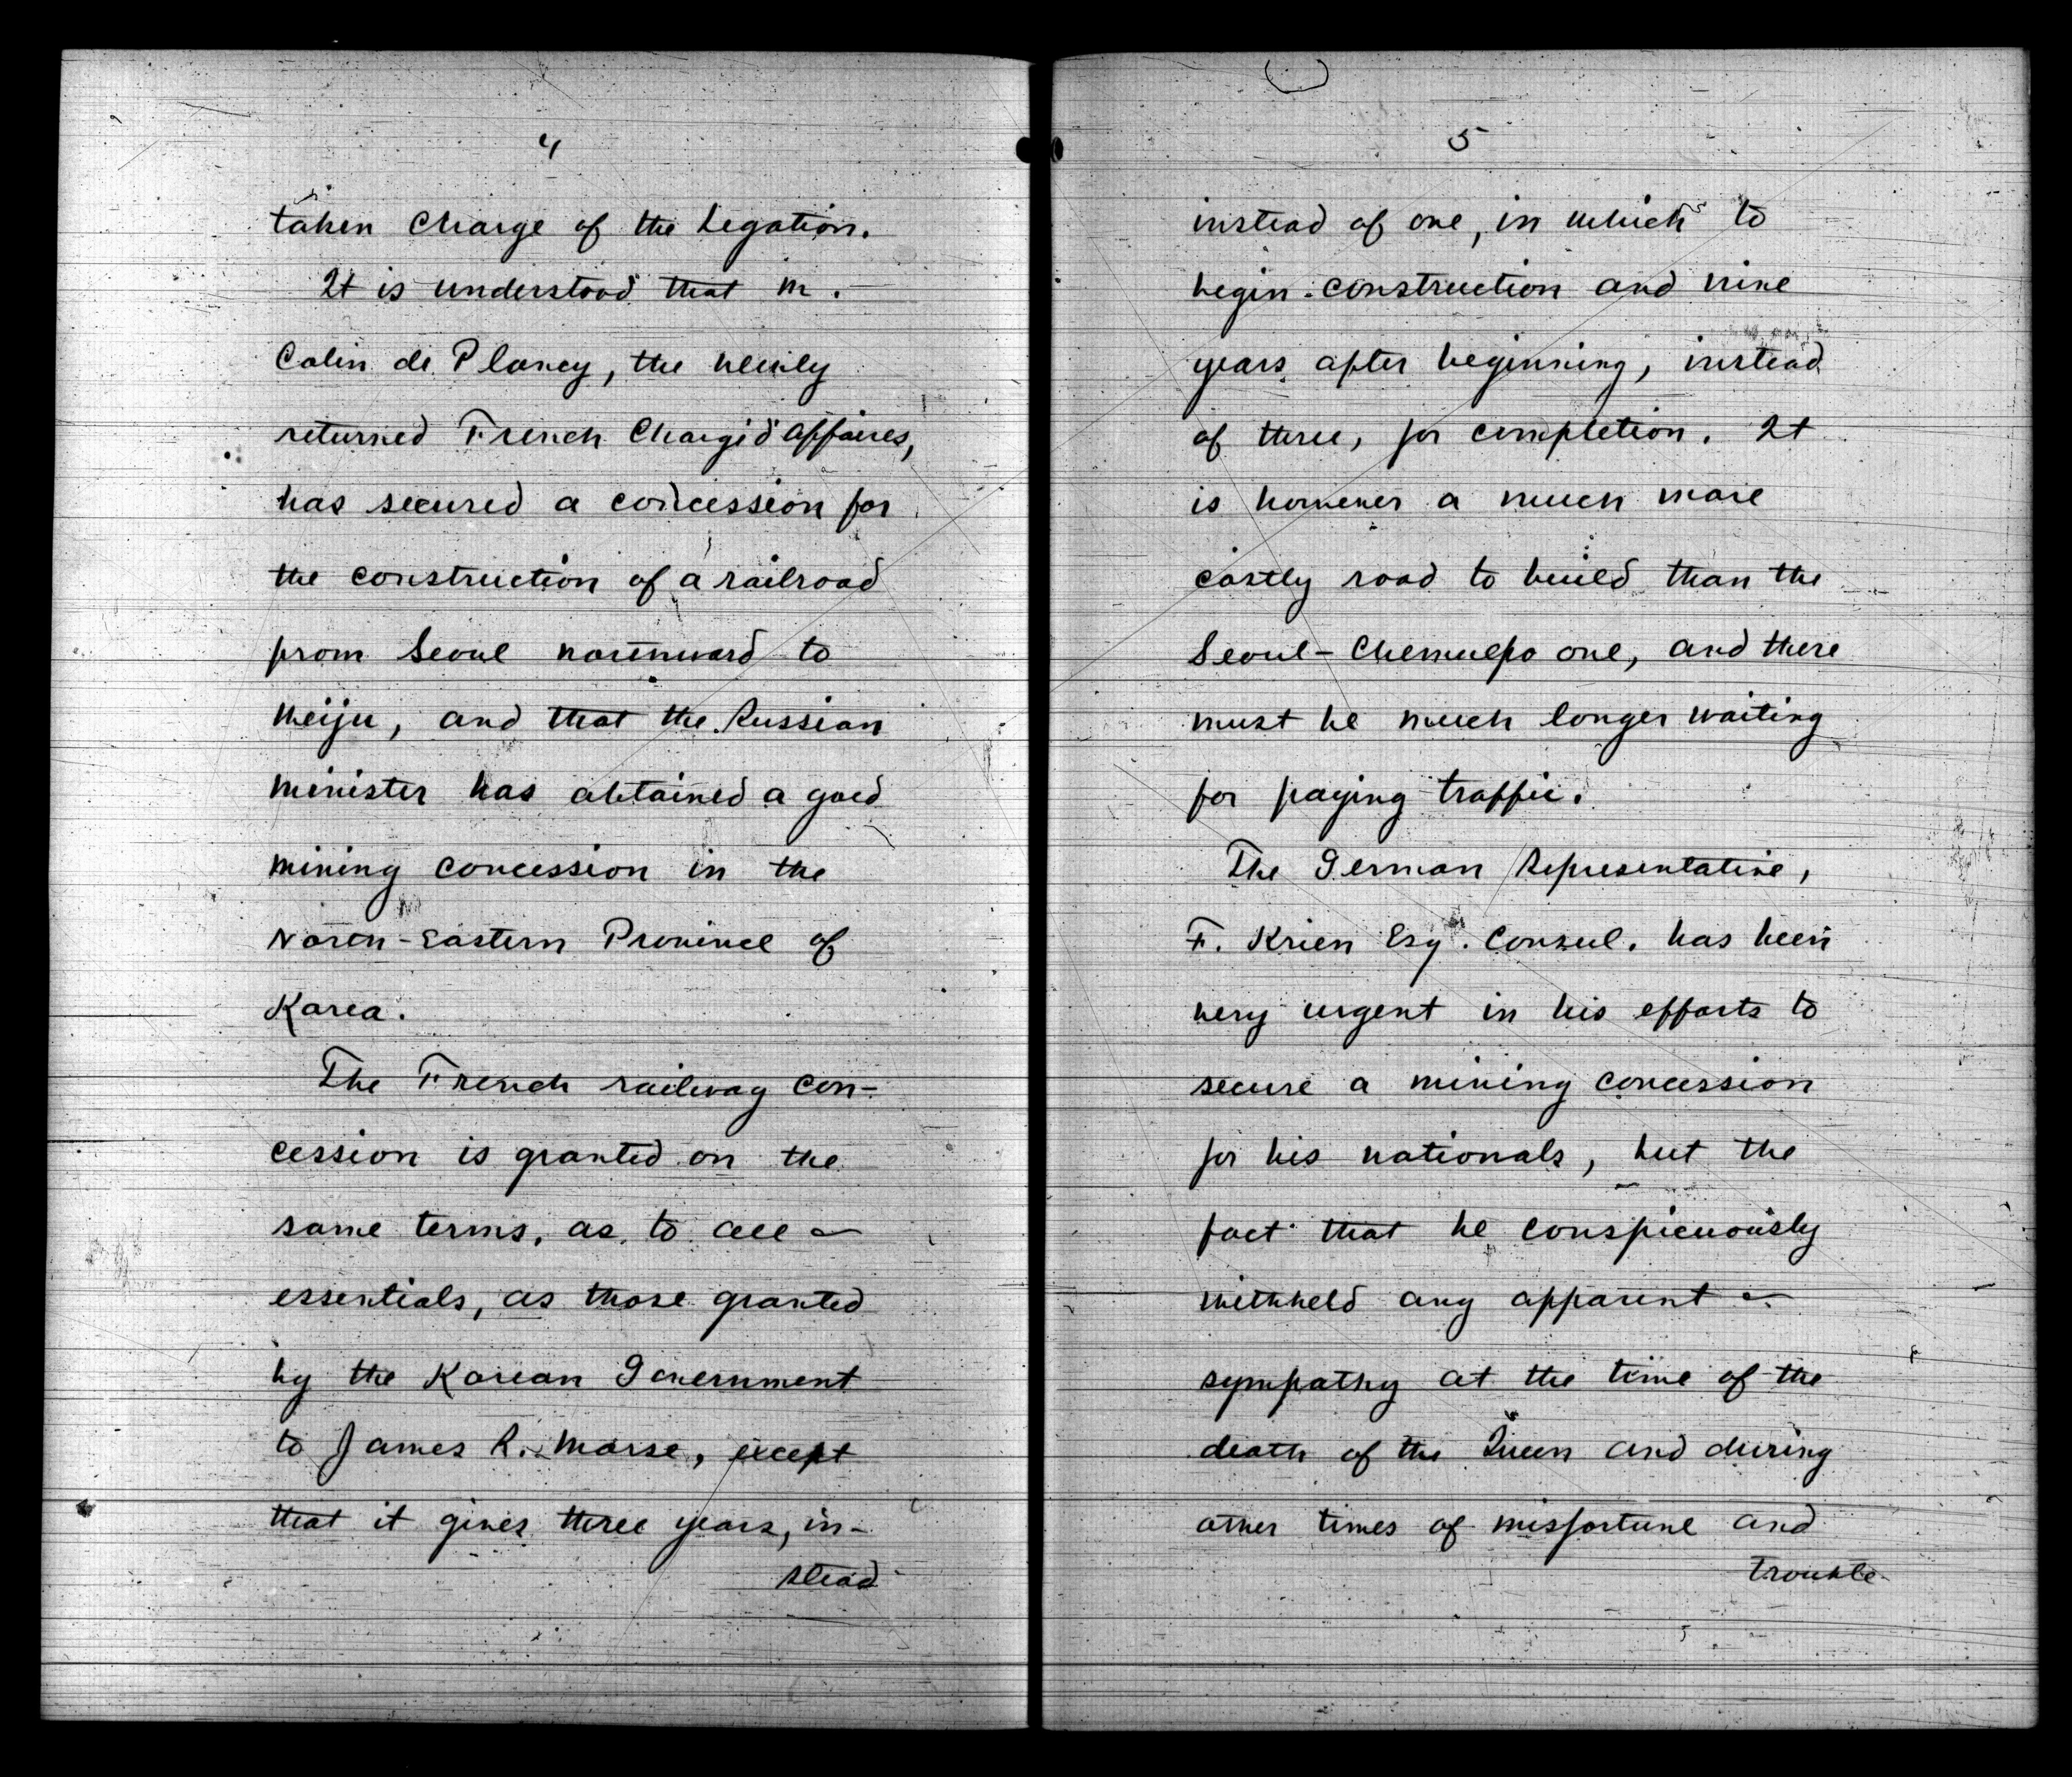 4
taken charge of the Legation.
It is understood that M.
Colin de Plancy, the newly
returned French Chargé d'affaires,
has secured a concession for
the construction of a railroad
from Seoul northward to
Weiju, and that the Russian
Minister has obtained a gold
mining concession in the
North-Eastern Province of
Korea.
The French railway con-
cession is granted on the
same terms, as to all
essentials, as those granted
by the Korean Government
to James R. Morse, except
that it gives three years, in-
stead
5
instead of one, in which to
begin construction and nine
years after beginning, instead
of three, for completion. It
is however a much more
costly road to build than the
Seoul-Chemulpo one, and there
must be much longer waiting
for paying traffic.
The German Representative,
F. Krien Esq. Consul, has been
very urgent in his efforts to
secure a mining concession
for his nationals, but the
fact that he conspicuously
withheld any apparent
sympathy at the time of the
death of the Queen and during
other times of misfortune and
trouble